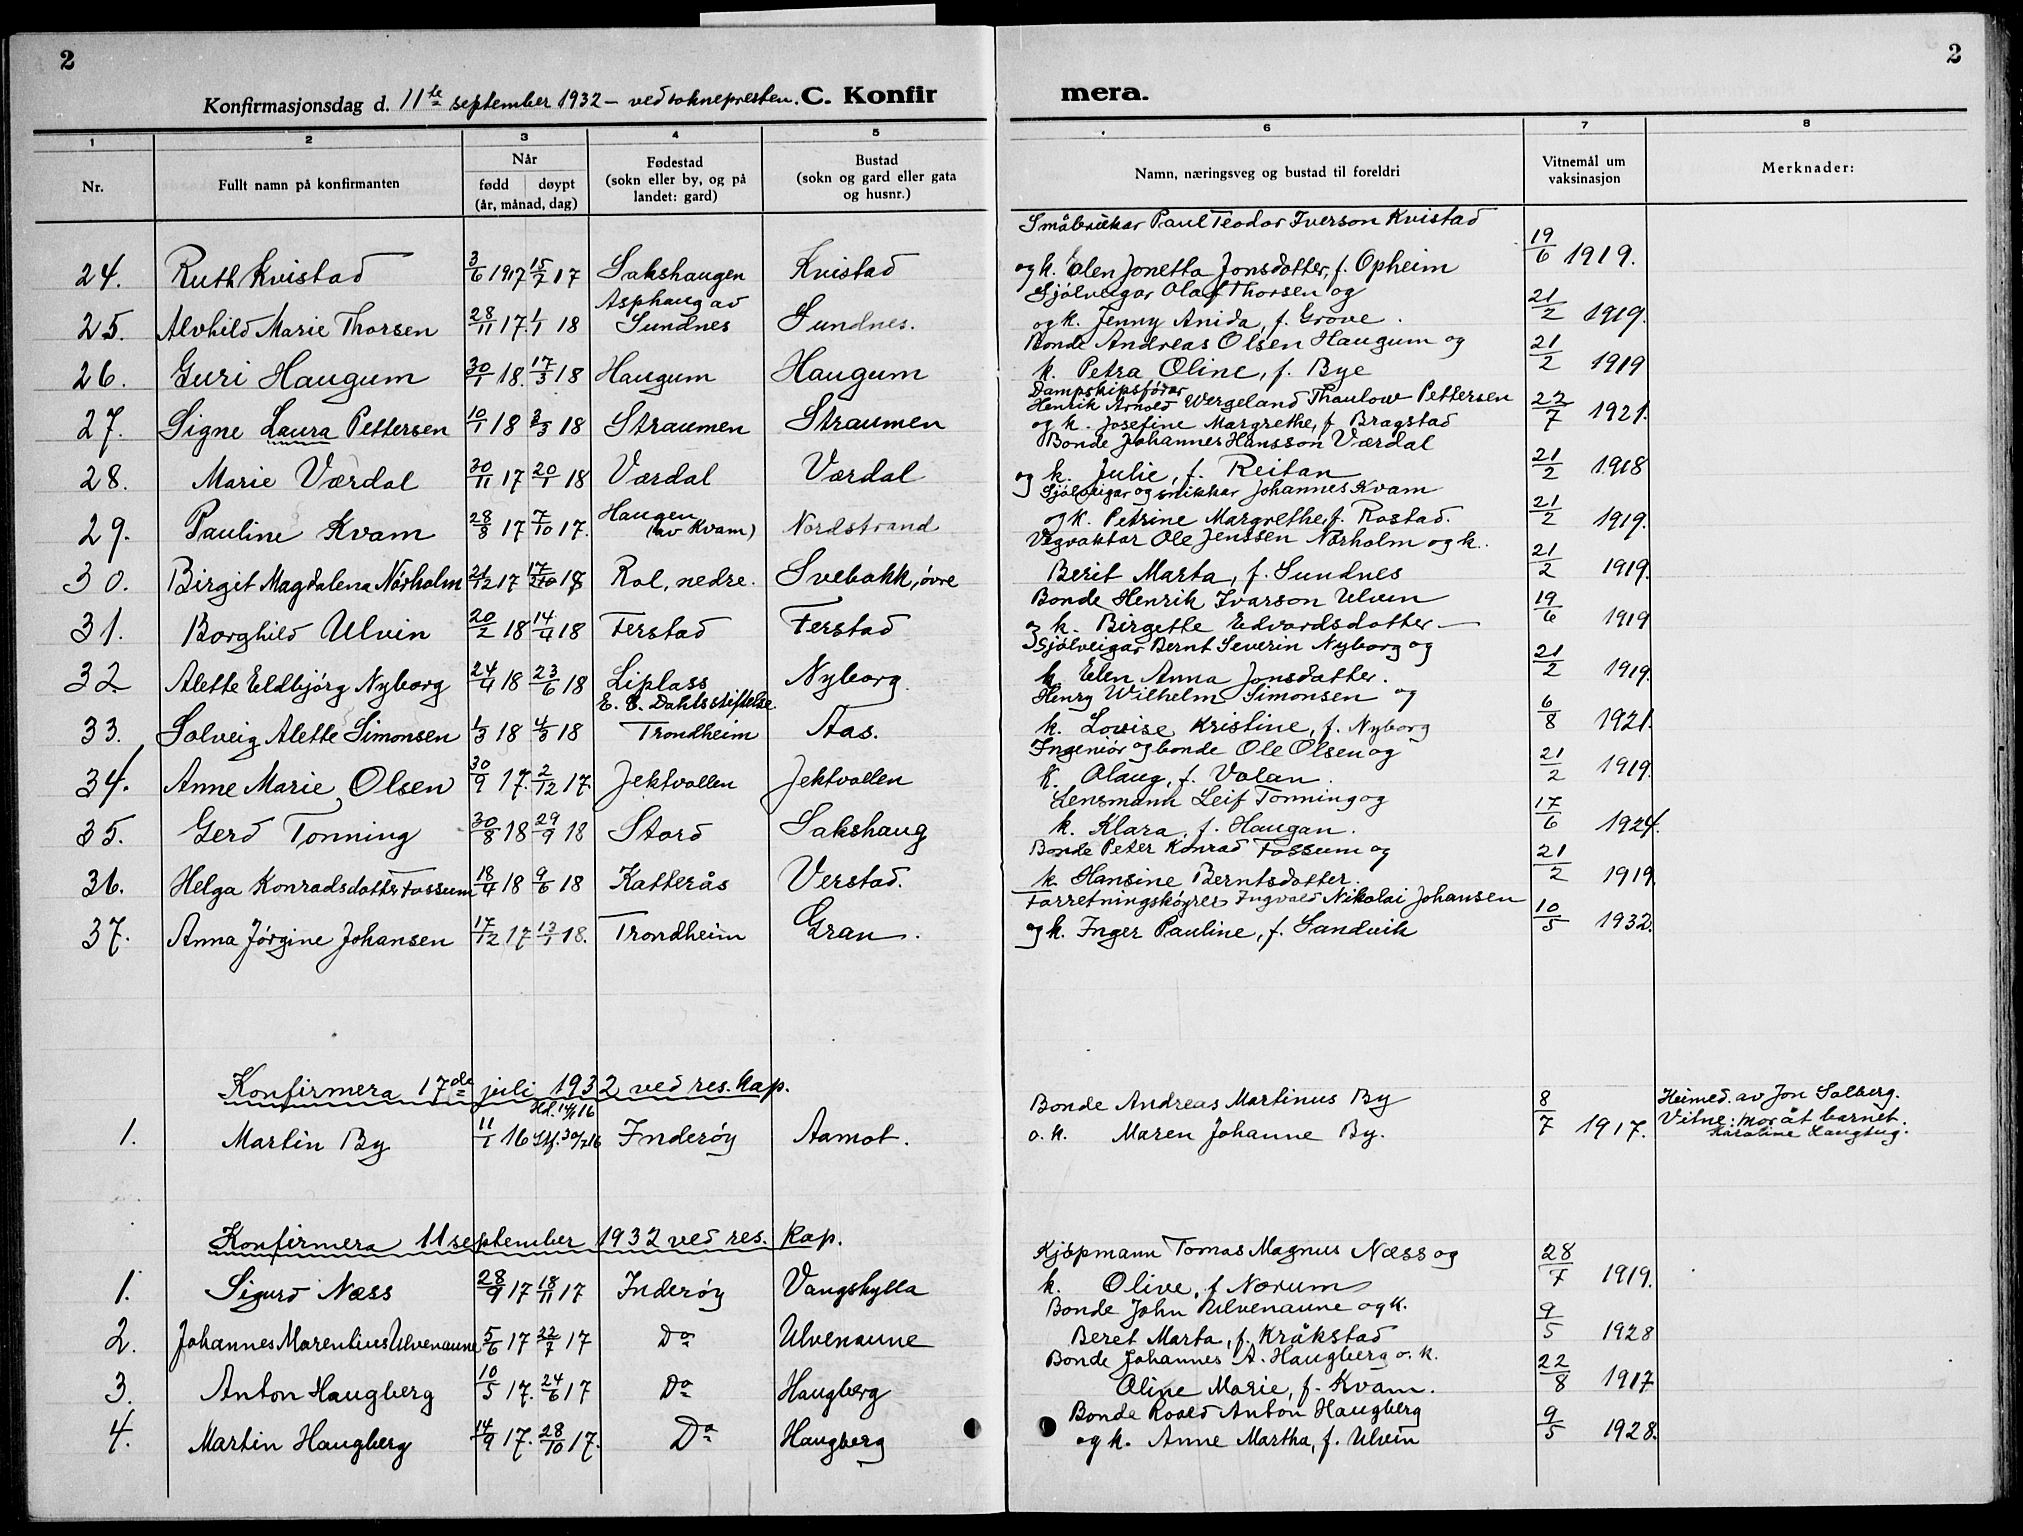 2
Konfirmasjonsdag d. 11te september 1932 – ved sokneprestten. C. Konfir
mera.
2
1 2 3 4 5 6 7 8
Nr. Fullt namn på konfirmanten Når fødd døypt (år, månad, dag) Fødestad (sokn eller by, og på landet: gard) Bustad (sokn og gard eller gata og husnr.) Namn, næringsveg og bustad til foreldri Vitnemål um vaksinasjon Merknader:
Småbrukar Paul Teodor Iverson Kvistad
24. Ruth Kvistad 3/6 1917 15/7 17 Sakshaugen Kvistad og k. Elen Jonetta Jonsdatter, f. Opheim 19/6 1919.
Asphaug av Sjølveigar Olaf Thorsen og
25. Alvhild Marie Thorsen 28/11 17. 1/1 18 Sundnes Sundnes. og k. Jenny Anida, f. Grove. 21/2 1919.
Bonde Andreas Olsen Haugum og
26. Guri Haugum 30/1 18. 17/3 18 Haugum Haugum k. Petra Oline, f. Bye 21/2 1919
Dampskipsførar
Henrik Arnold Wergeland Thaulow Pettersen
27. Signe Laura Pettersen 10/1 18 3/3 18 Straumen Straumen og k. Josefine Margrethe, f. Bragstad 22/7 1921.
Bonde Johannes Hansson Værdal
28. Marie Værdal 30/11 17 20/1 18 Værdal Værdal og k. Julie, f. Reitan 21/2 1918
Haugen Sjølveigar og snikkar Johannes Kvam
29. Pauline Kvam 28/8 17 7/10 17. (av Kvam) Nordstrand og k. Petrine Margrethe, f. Rostad. 21/2 1919.
Vegvaktar Ole Jentsen Norholm og k.
30. Birgit Magdalena Norholm 21/12 17 17/2 18 Rol, nedre. Svebakk, øvre Berit Marta, f. Sundnes 21/2 1919.
Bonde Henrik Ivarson Ulven
31. Borghild Ulvin 20/2 18 14/4 18 Ferstad Ferstad og k. Birgette Edvardsdatter – 19/6 1919
Sjølveigar Bernt Severin Nyborg og
32 Alette Eldbjørg Nyborg 24/4 18 23/6 18 Liplass Nyborg. k. Elen Anna Jonsdatter. 21/2 1919.
E. C. Dahls stiftelse Henry Wilhelm Simonsen og
33. Solveig Alette Simonsen 1/3 18 4/3 18 Trondheim Aas. k. Lovise Kristine, f. Nyborg 6/8 1921.
Ingeniør og bonde Ole Olsen og
34. Anne Marie Olsen 30/9 17. 2/12 17. Jektvollen Jektvollen k. Olaug, f. Valan. 21/2 1919.
Lensmann Leif Tonning og
35. Gerd Tonning 30/8 18 29/9 18 Stord Sakshaug k. Klara, f. Haugan. 17/6 1924.
Bonde Peter Konrad Fossum og
36. Helga Konradsdatter Fossum 18/4 18 9/6 18 Katterås Verstad. k. Hansine Berntsdatter. 21/2 1919.
Forretningskøyrer Ingvald Nikolai Johansen
37. Anna Jørgine Johansen 17/12 17 13/1 18. Trondheim Gran. og k. Inger Pauline, f. Sandvik 10/5 1932.
Konfirmera 17de juli 1932 ved res. kap.
Bonde Andreas Martinus By 8/7 1917. Heimed. av Jon Solberg.
1. Martin By 11/1 16 Stf. 30/7 16 Inderøy Aamot. o. k. Maren Johanne By. Vitne: mor åt barnet.
Karoline
Konfirmera 11 september 1932 ved res. kap.
Kjøpmann Tomas Magnus Næss og
1. Sigurd Næss 28/9 17 18/11 17 Inderøy Vangshylla k. Olive, f. Norum 28/7 1919.
Bonde John Ulvenaune og k.
2. Johannes Marentius Ulvenaune 5/6 17 22/7 17 Do Ulvenaune Beret Marta, f. Kråkstad 9/5 1928
Bonde Johannes A. Haugberg o. k.
3. Anton Haugberg 10/5 17. 24/6 17 Do Haugberg Oline Marie, f. Kvam. 22/8 1917
Bonde Roald Anton Haugberg
4. Martin Haugberg 14/9 17. 28/10 17. Do Haugberg og k. Anne Martha, f. Ulvin 9/5 1928.